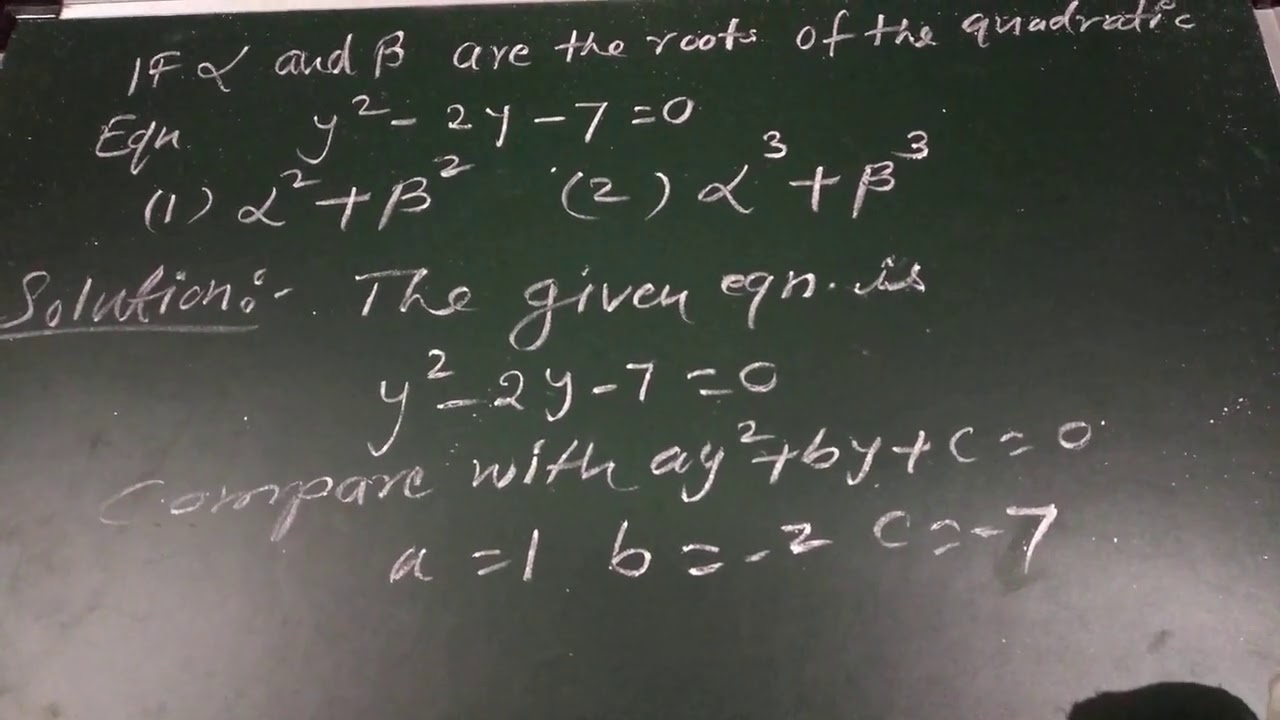 IF α and β are the roots of the quadratic
Eqn. y² - 2y - 7 = 0
(1) α² + β² (2) α³ + β³
Solution:- The given eqn. is
y² - 2y - 7 = 0
Compare with ay² + by + c = 0
a = 1 b = -2 c = -7